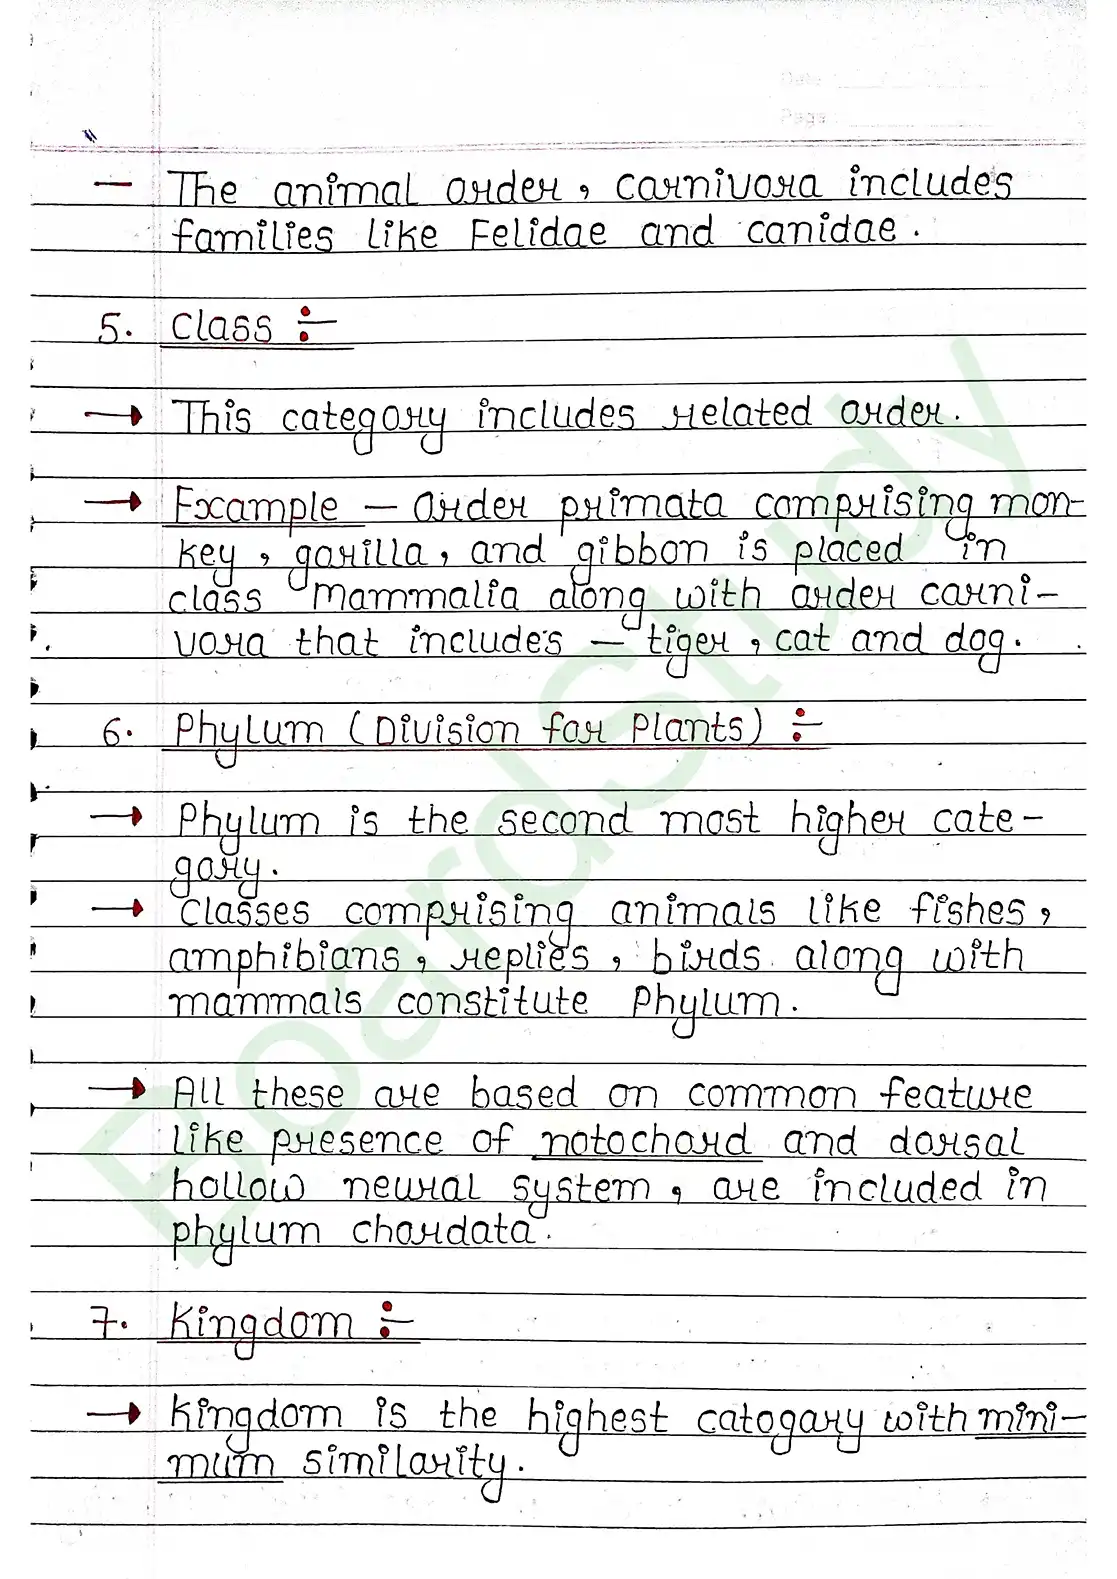 — The animal order, carnivora includes
families like Felidae and canidae.
5. Class ÷
→ This category includes related order.
→ Example — Order primata comprising mon-
key, gorilla, and gibbon is placed in
class Mammalia along with order carni-
vora that includes — tiger, cat and dog.
6. Phylum (Division for Plants) ÷
→ Phylum is the second most higher cate-
gory.
→ Classes comprising animals like fishes,
amphibians, replies, birds along with
mammals constitute Phylum.
→ All these are based on common feature
like presence of notochord and dorsal
hollow neural system, are included in
phylum chordata.
7. Kingdom ÷
→ Kingdom is the highest catogary with mini-
mum similarity.
BoardStudy